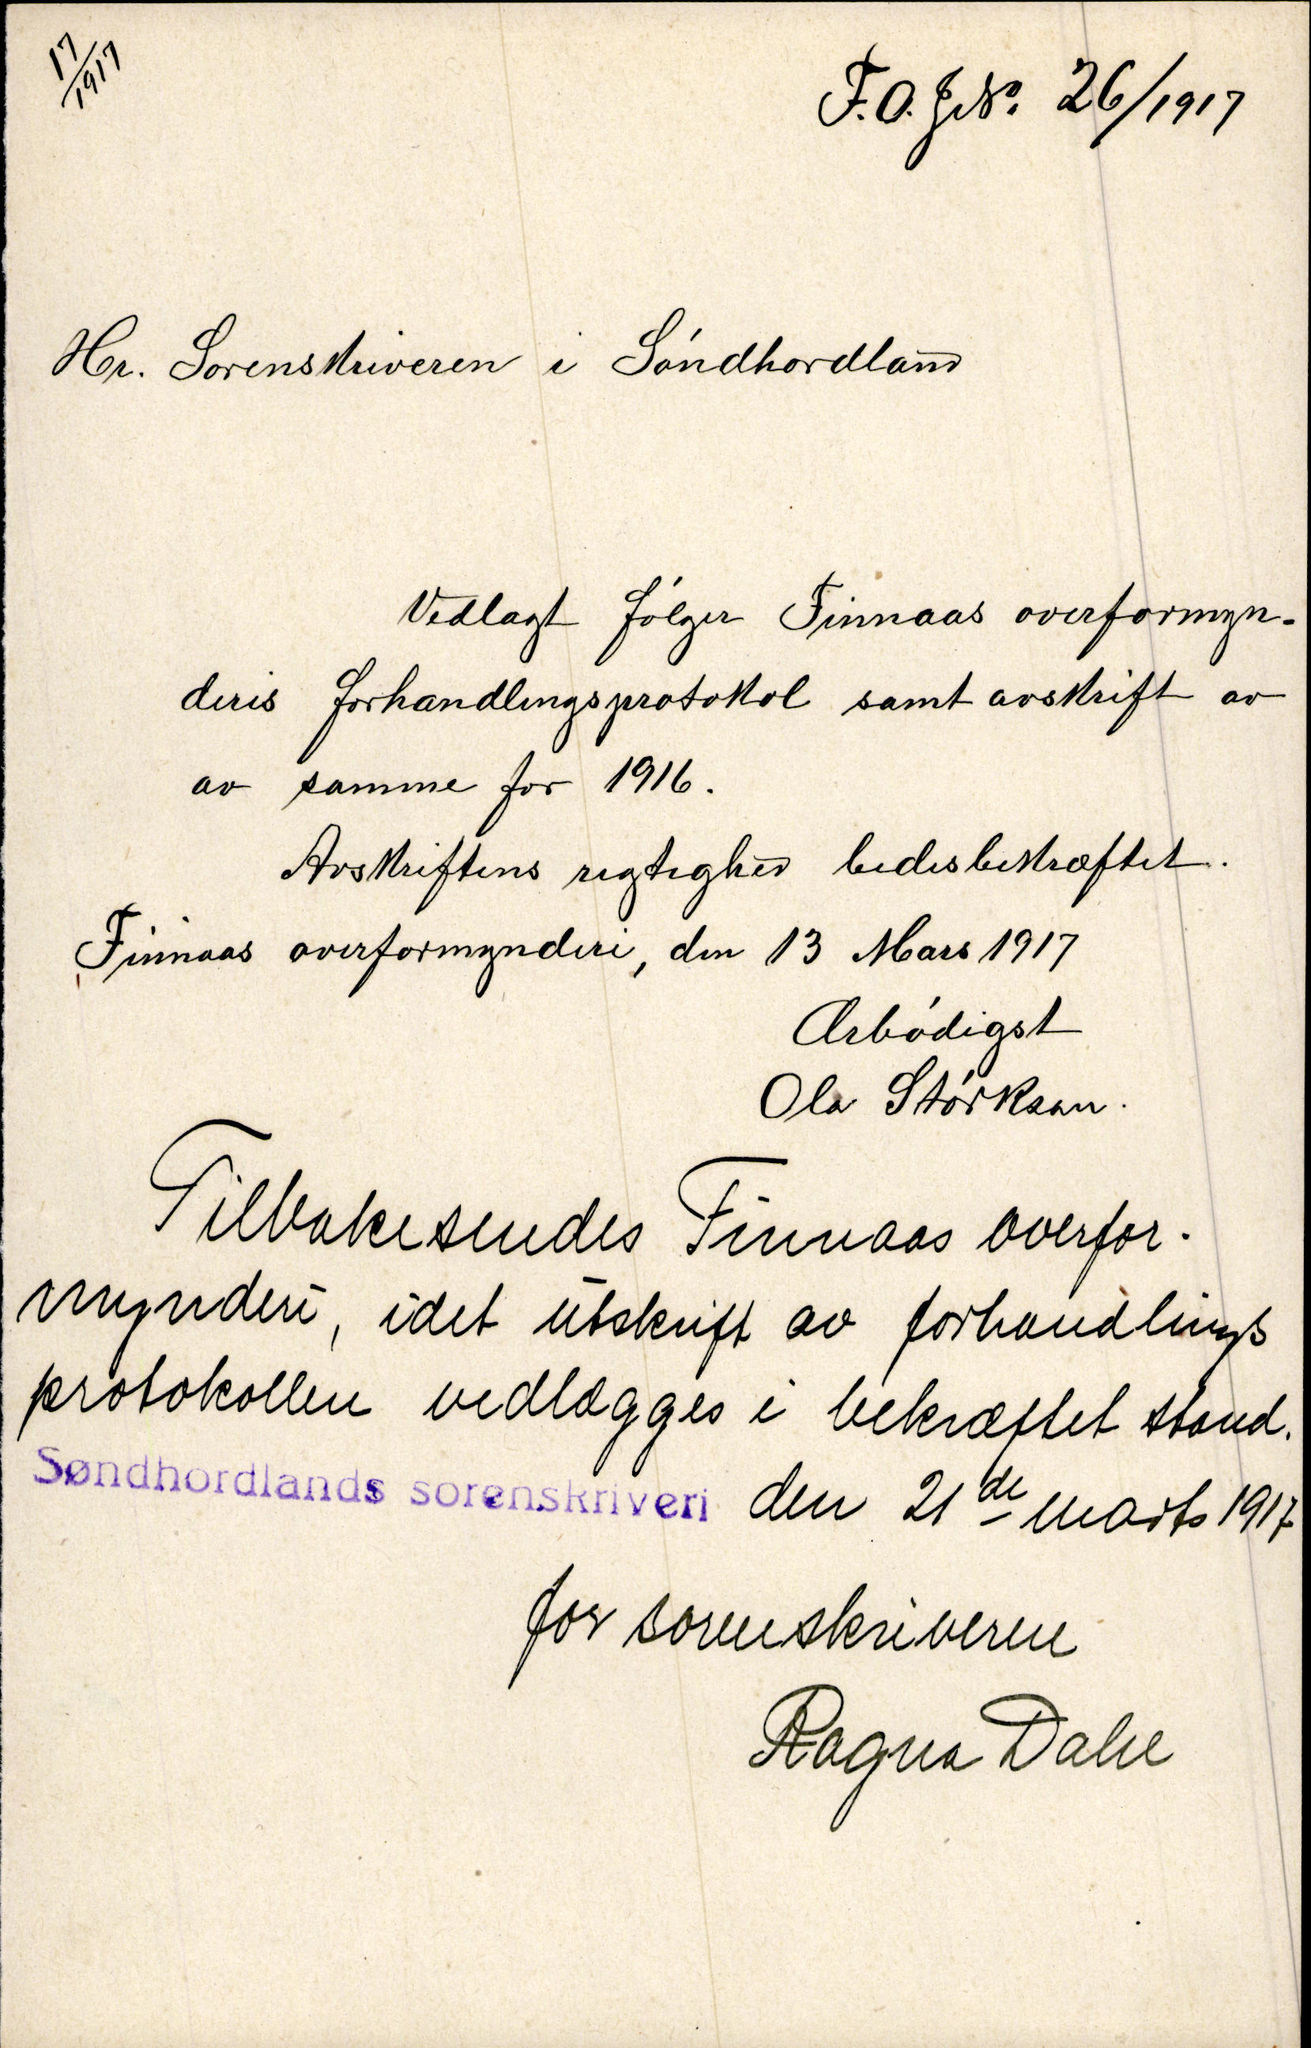 17/1917
F.O. J No. 26/1917
Hr. Sorenskriveren i Söndhordland
Vedlagt fölger Finnaas overformyn-
deris forhandlingsprotokol samt avskrift av
av samme for 1916.
Avskriftens rigtighed bedes bekræftet.
Finnaas overformynderi, den 13 Mars 1917
Ærbödigst
Ola Störksen.
Tilbakesendes Finnaas overfor-
mynderi, idet utskrift av forhandlings
protokollen vedlægges i bekræftet stand.
Søndhordlands sorenskriveri den 21de marts 1917
for sorenskriveren
Ragna Dahl